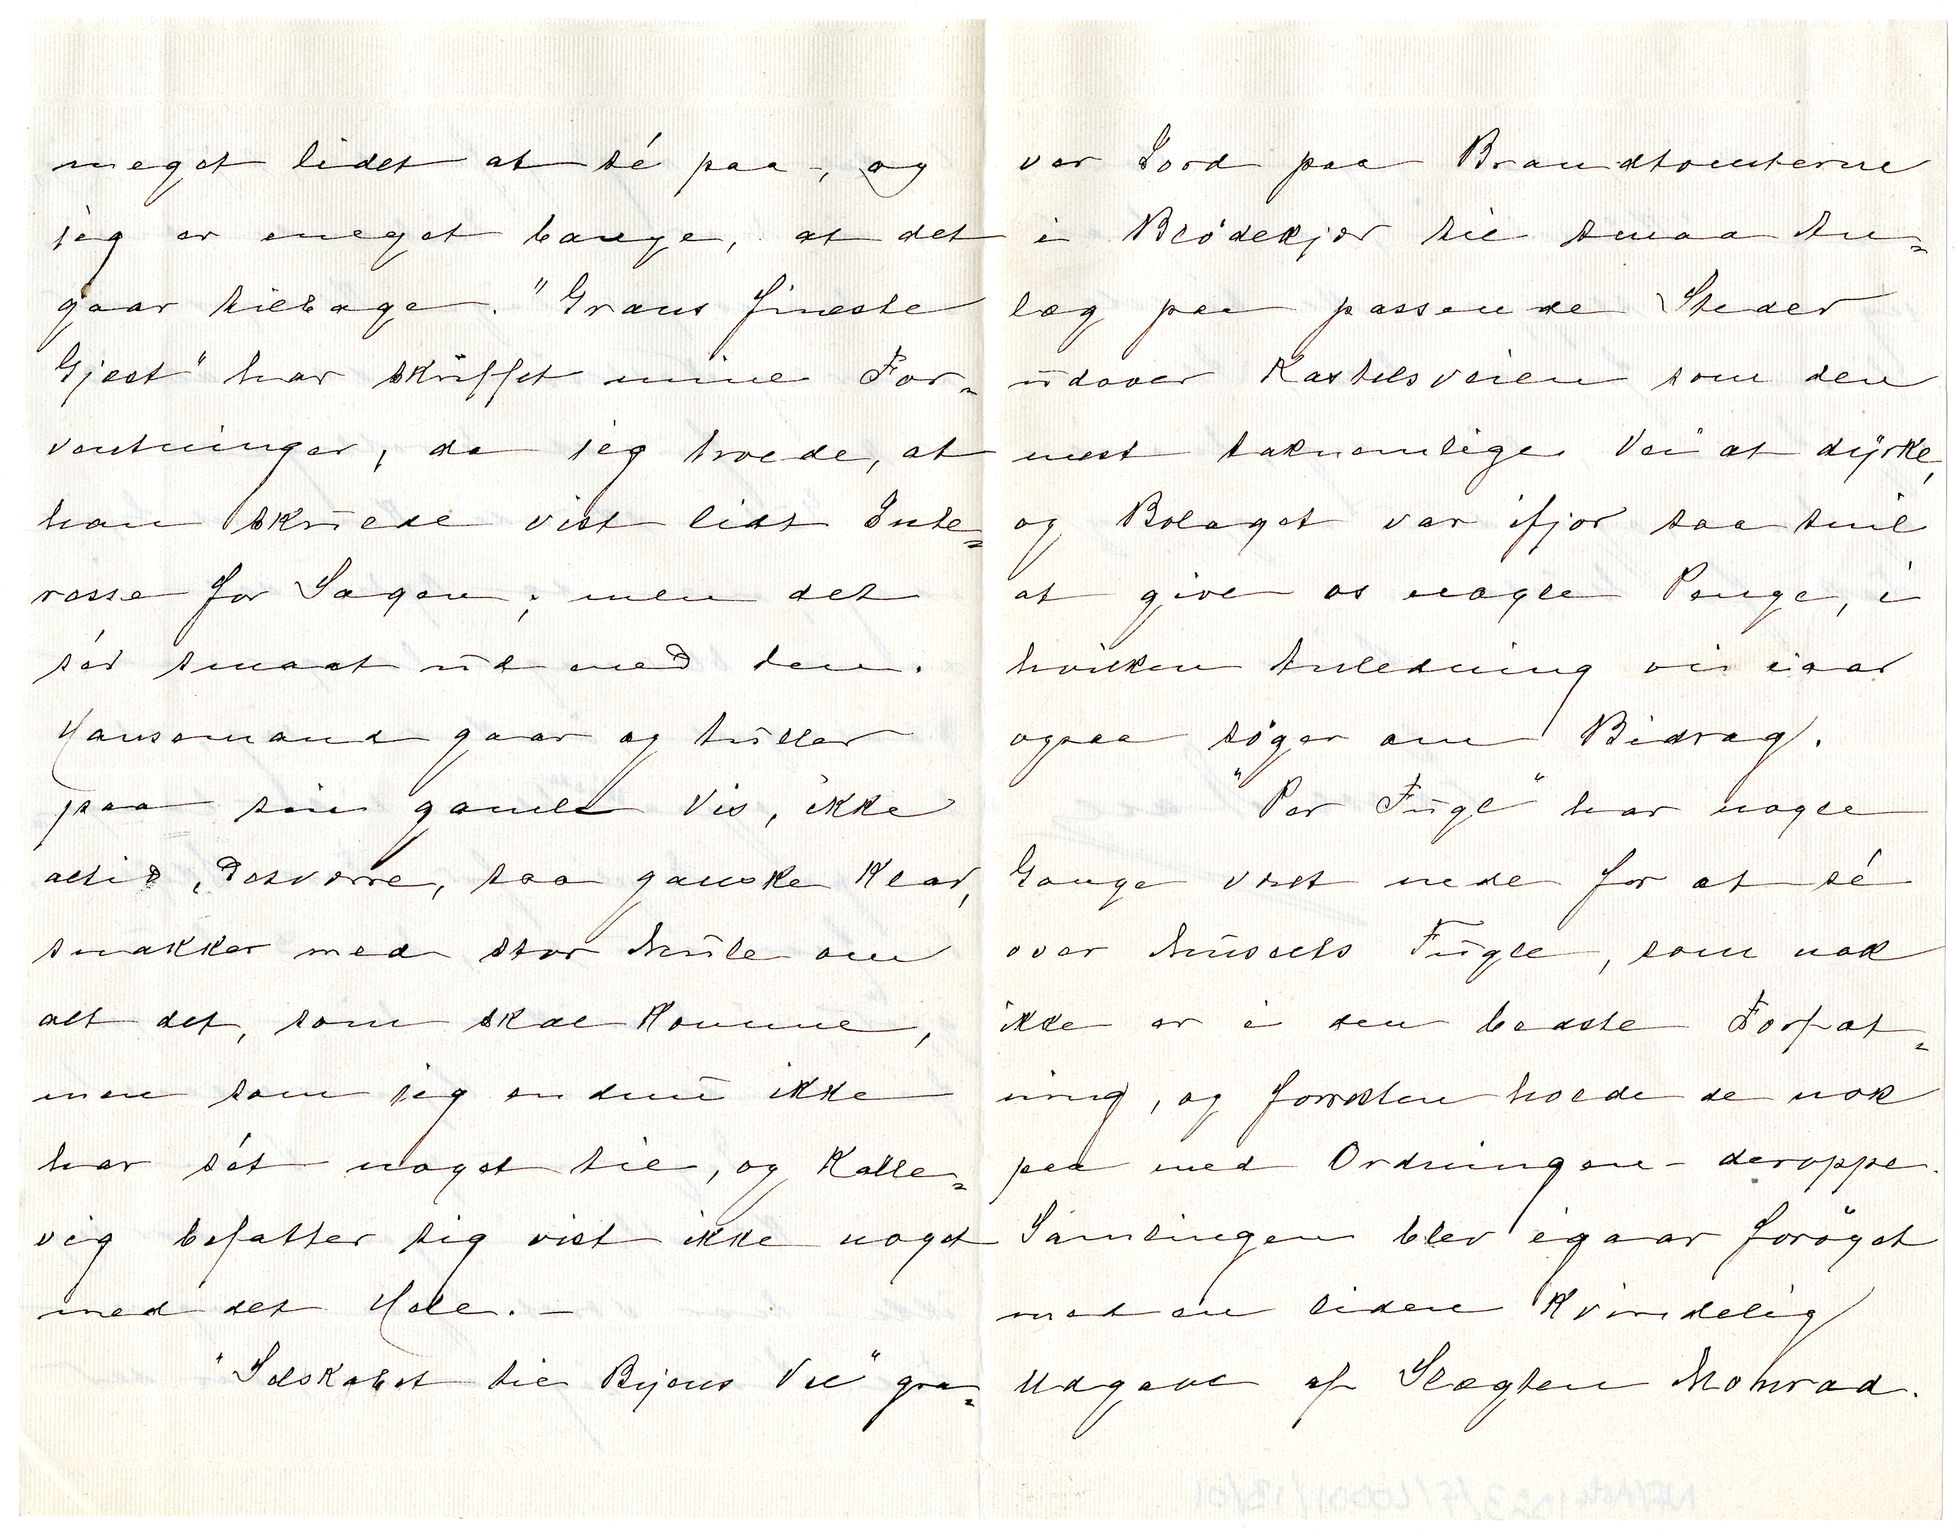 meget lidet at sé paa, og
jeg er meget bange, at det
gaar tilbage. "Grans fineste
Gjest" har skuffet mine For=
ventninger, da jeg troede, at
han skulde vist lidt Inte=
resse for Sagen; men det
sér smaat ud med den.
Hansemand gaar og tuller
paa sin gamle Vis, ikke
altid, desværre, saa ganske klar,
snakker med stor Mule om
alt det, som skal komme,
men som jeg endnu ikke
har sét noget til, og Kalle=
vig befatter sig vist ikke noget
med det Hele. –
"Selskabet til Byens Vel" gra=
ver Jord paa Brandtomterne
i Blødekjær til smaa An=
læg paa passende Steder
udover Kastelsveien som den
mest taknemlige Vei at dyrke,
og Bolaget var ifjor saa snil
at give os nogle Penge, i
hvilken Anledning vi iaar
ogsaa søger om Bidrag.
"Per Fugl" har nogle
Gange vært nede for at sé
over Muséets Fugle, som nok
ikke er i den bedste Forfat=
ning, og forresten holder de nok
paa med Ordningen deroppe.
Samlingen blev igaar forøget
med en liden kvindelig
Udgave af Slægten Mohrad.